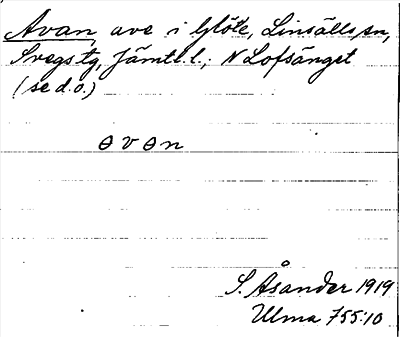 Avan, ave i Glöte, Linsälls sn,
Svegs tg, Jämtl. l.; N Lofsänget
(se d.o.)
ɵvɵn
S. Åsander 1919
Ulma 755:10